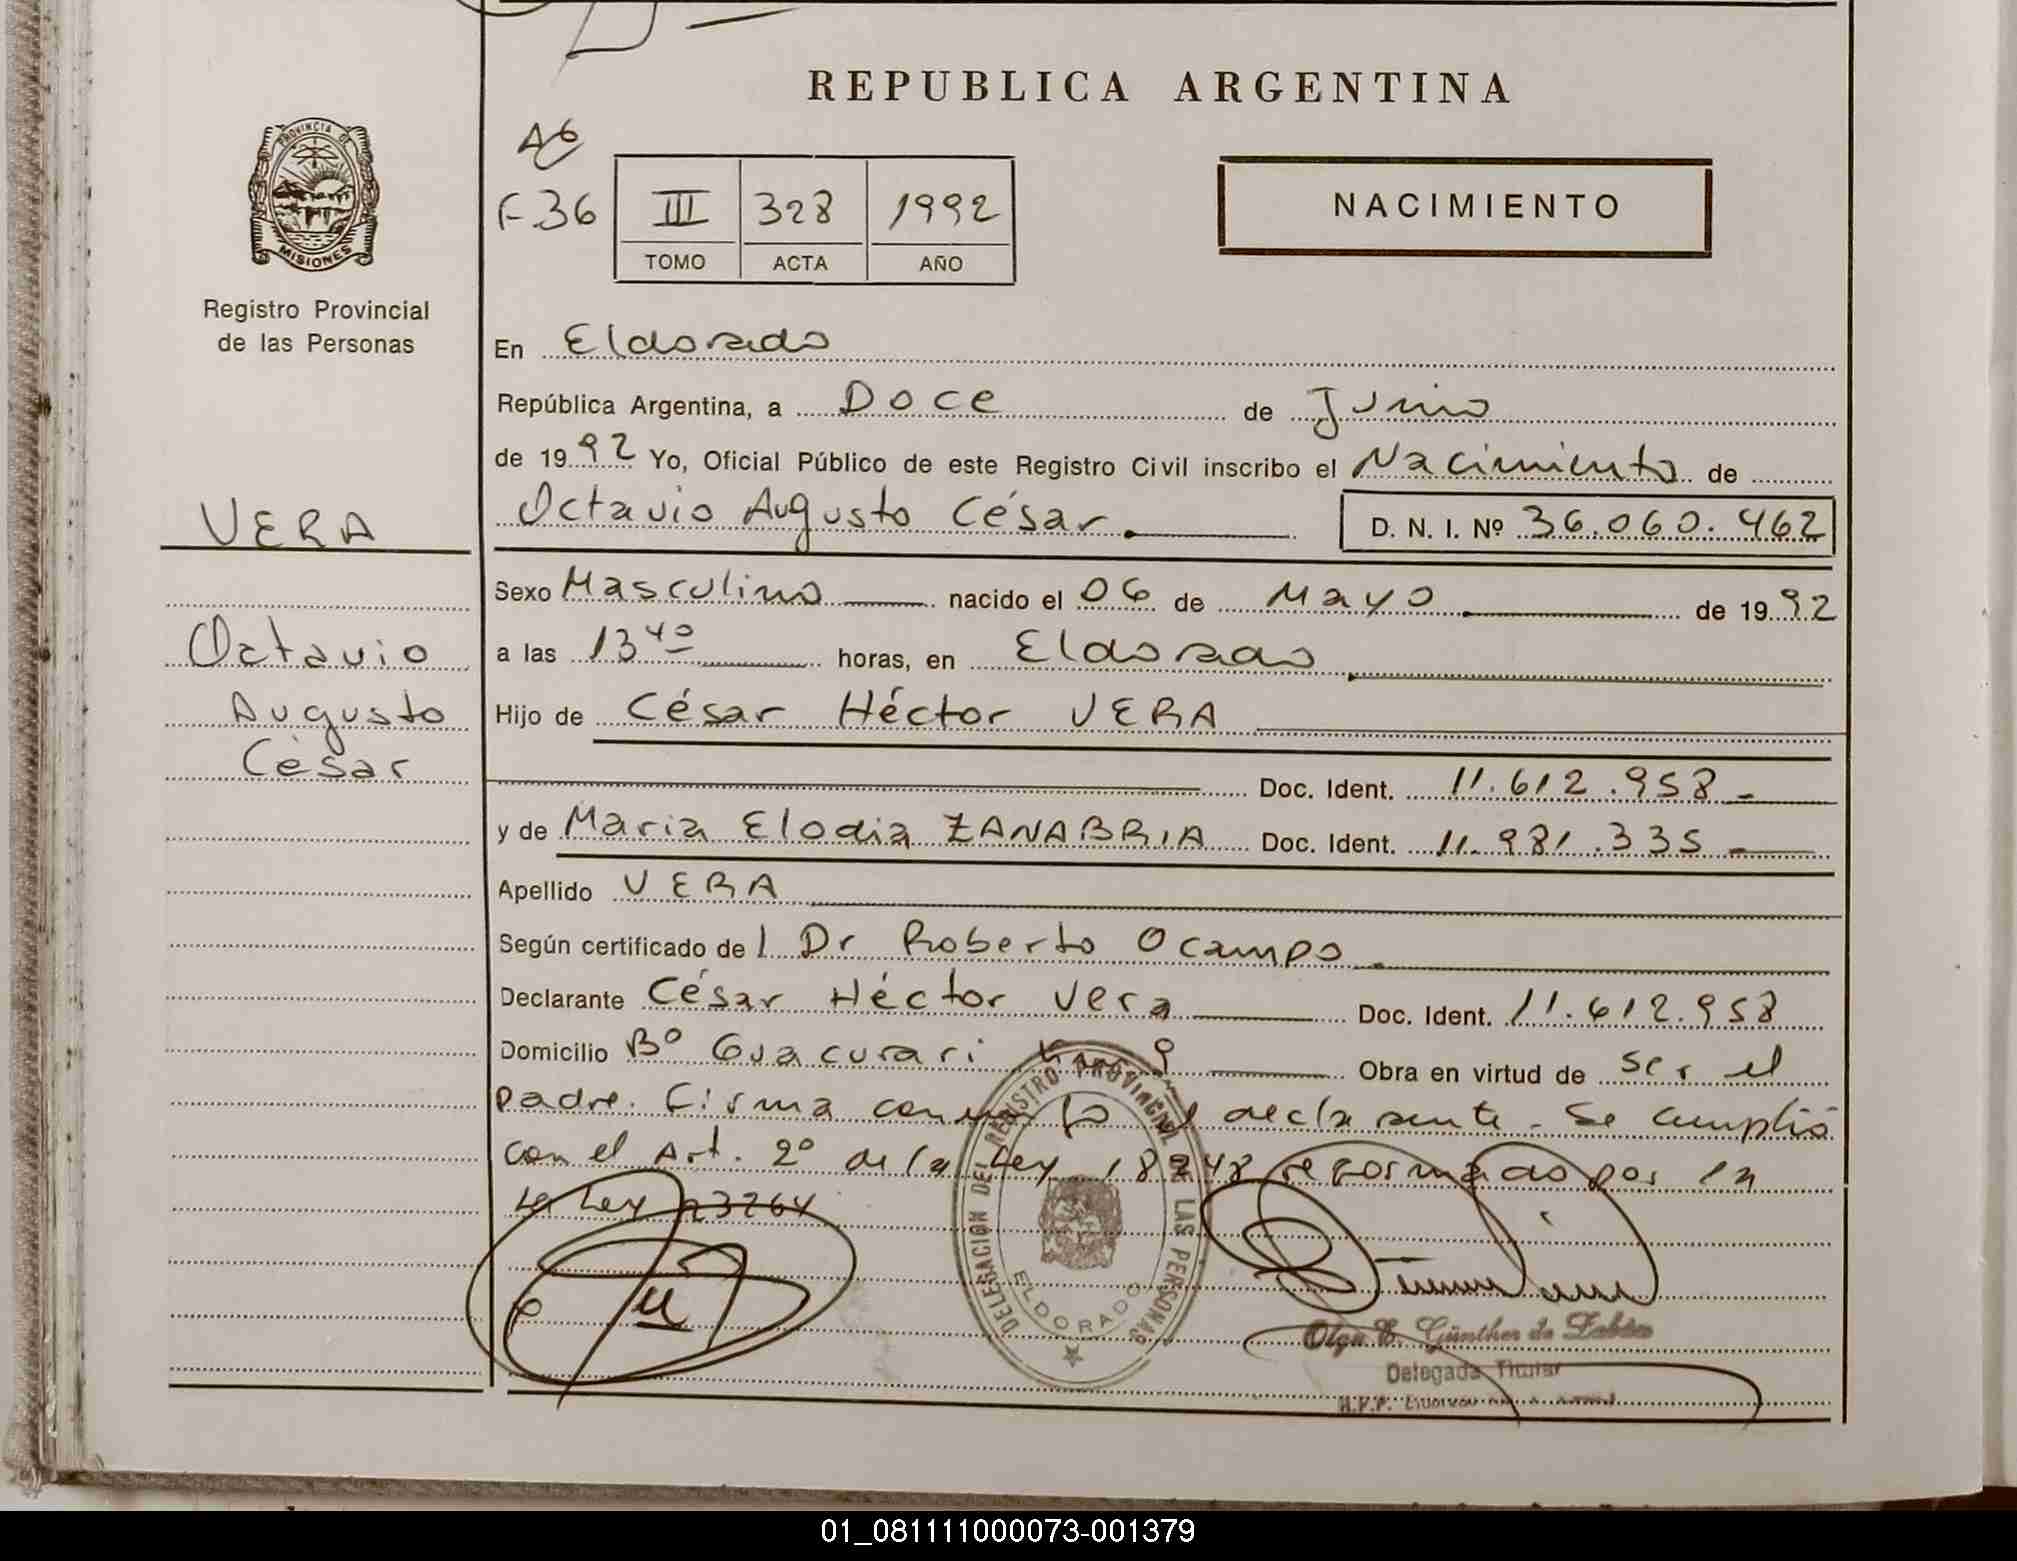 REPUBLICA ARGENTINA
PROVINCIA DE
MISIONES
Registro Provincial
de las Personas
F.36
III 328 1992
TOMO ACTA AÑO
NACIMIENTO
En Eldorado
República Argentina, a Doce de Junio
de 1992 Yo, Oficial Público de este Registro Civil inscribo el Nacimiento de
Octavio Augusto César. D. N. I. Nº 36.060.462
VERA
Octavio
Augusto
César
Sexo Masculino nacido el 06 de Mayo de 1992
a las 13 40 horas, en Eldorado
Hijo de César Héctor VERA
Doc. Ident. 11.612.958 -
y de Maria Elodia ZANABRIA Doc. Ident. 11.981.335 -
Apellido VERA
Según certificado del Dr Roberto Ocampo
Declarante César Héctor Vera Doc. Ident. 11.612.958
Domicilio Bº Guacurari 9 Obra en virtud de ser el
padre. Firma el declarante - Se cumplió
con el Art. 2º de la Ley 18248 reformado por la
La Ley 23264
DELEGACION DEL REGISTRO PROVINCIAL DE LAS PERSONAS
ELDORADO
Olga E. Günther de
Delegada Titular
01_081111000073-001379